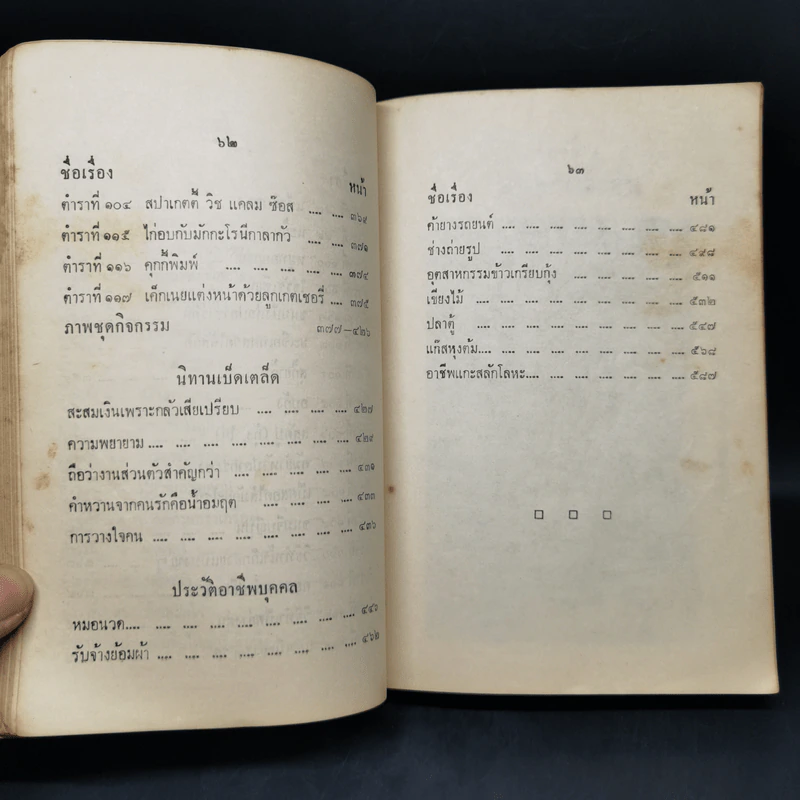 ๖๒
ชื่อเรื่อง หน้า
ตำราที่ ๑๐๔ สปาเกตตี้ วิช แคลม ซ๊อส .... .... ๓๖๙
ตำราที่ ๑๑๕ ไก่อบกับมักกะโรนีกาลากัว .... .... ๓๗๑
ตำราที่ ๑๑๖ คุกกี้พิมพ์ .... .... .... .... .... ๓๗๔
ตำราที่ ๑๑๗ เค็กเนยแต่งหน้าด้วยลูกเกตเชอรี่ .... ๓๗๕
ภาพชุดกิจกรรม ๓๗๗-๔๒๖
นิทานเบ็ดเตล็ด
สะสมเงินเพราะกลัวเสียเปรียบ .... .... .... .... ๔๒๗
ความพยายาม .... .... .... .... .... .... .... ๔๒๙
ถือว่างานส่วนตัวสำคัญกว่า .... .... .... .... .... ๔๓๑
คำหวานจากคนรักคือน้ำอมฤต .... .... .... .... ๔๓๓
การวางใจคน .... .... .... .... .... .... .... ๔๓๖
ประวัติอาชีพบุคคล
หมอนวด.... .... .... .... .... .... .... .... ๔๔๖
รับจ้างย้อมผ้า .... .... .... .... .... .... .... ๔๖๒
๖๓
ชื่อเรื่อง หน้า
ค้ายางรถยนต์ .... .... .... .... .... .... .... ๔๘๑
ช่างถ่ายรูป .... .... .... .... .... .... .... ๔๙๘
อุตสาหกรรมข้าวเกรียบกุ้ง .... .... .... .... .... ๕๑๑
เขียงไม้ .... .... .... .... .... .... .... .... ๕๓๒
ปลาตู้ .... .... .... .... .... .... .... .... ๕๔๗
แก๊สหุงต้ม.... .... .... .... .... .... .... .... ๕๖๘
อาชีพแกะสลักโลหะ.... .... .... .... .... .... ๕๘๗